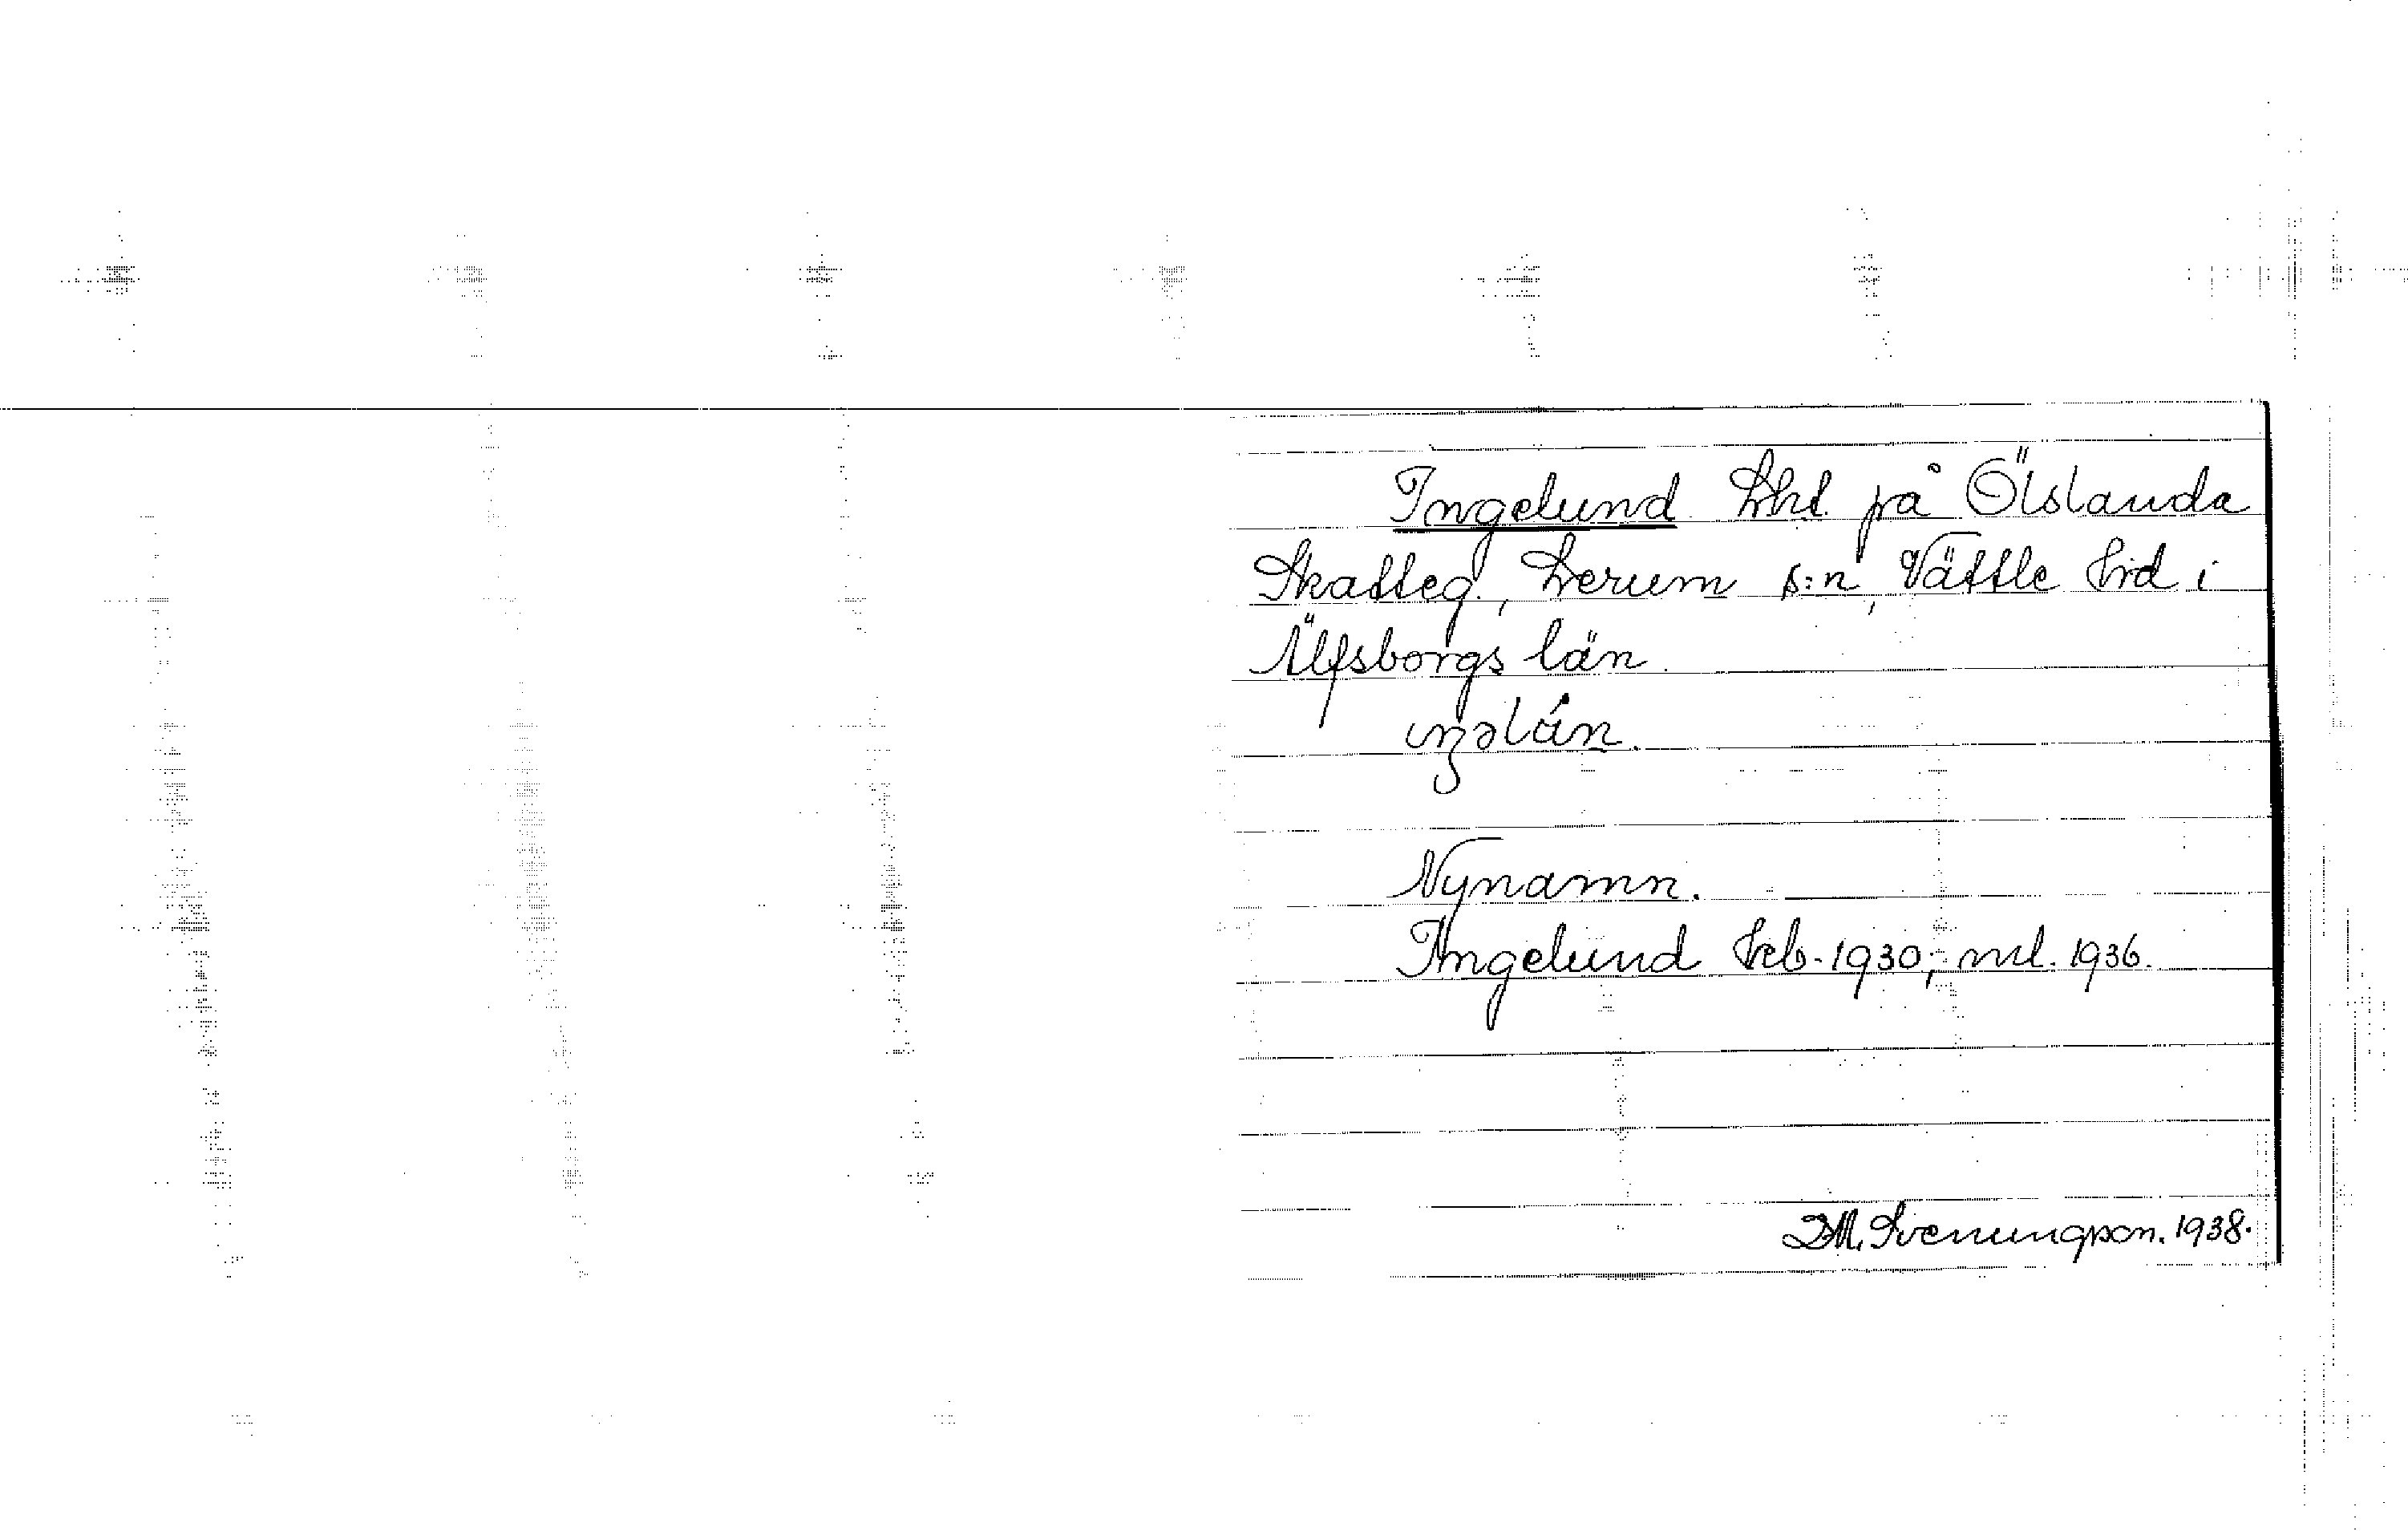 Ingelund Lht. på Ölslanda
Skatteg., Lerum s:n, Vättle hrd i
Älfsborgs län.
Nynamn.
Ingelund 1930; ml. 1936.
D.M. Svenungson. 1938.